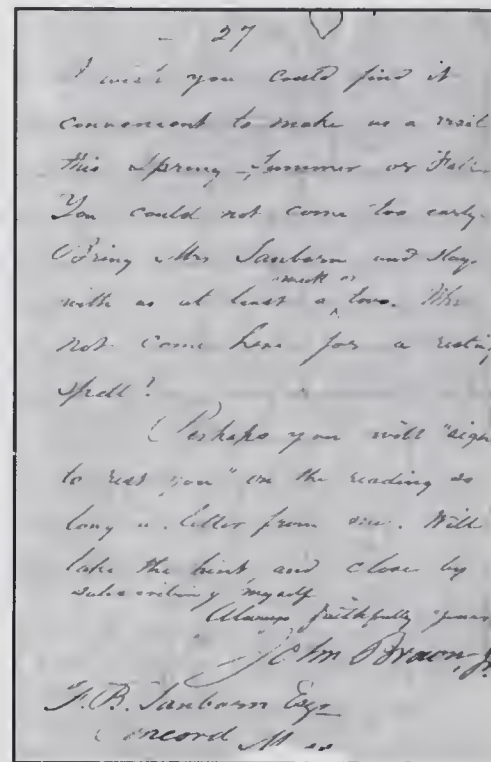 - 27
I wish you could find it
convenient to make us a visit
this Spring - Summer or Fall.
You could not come too early.
Bring Mrs Sanborn and stay
week or
with us at least a two. Why
not come here for a resting
spell?
Perhaps you will "sigh
to rest you" on the reading so
long a letter from me. Will
take the hint and close by
subscribing myself
Always faithfully yours
John Brown, Jr.
F. B. Sanborn Esq
Concord Mass